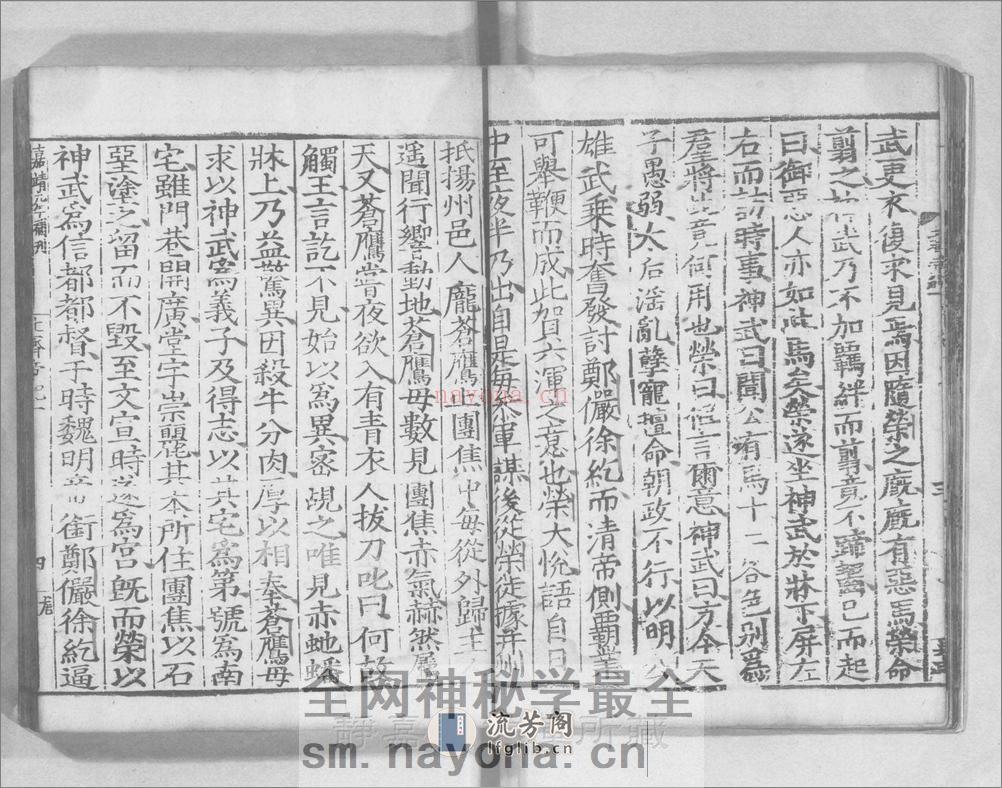 武更衣復求見焉因隨榮之廐廐有惡馬榮命
翦之神武乃不加羈絆而翦竟不蹄齧已而起
曰御惡人亦如此馬矣榮遂坐神武於牀下屏左
右而訪時事神武曰聞公有馬十二谷色別爲
羣將此竟何用也榮曰但言爾意神武曰方今天
子愚弱大后滛亂孽寵擅命朝政不行以明公
雄武乗時奮發討鄭儼徐紇而清帝側霸業
可舉鞭而成此賀六渾之意也榮大悅語自日
中至夜半乃出自是每叅軍謀後從榮徙據并州
抵揚州邑人龐蒼鷹止團焦中每從外歸主人
遥聞行響動地蒼鷹母數見團焦赤氣赫然屬
天又蒼鷹嘗夜欲入有青衣人拔刀叱曰何故
觸王言訖不見始以爲異密覘之唯見赤虵蟠
牀上乃益驚異因殺牛分肉厚以相奉蒼鷹母
求以神武爲義子及得志以其宅爲第號爲南
宅雖門巷開廣堂宇崇麗其本所住團焦以石
堊塗之留而不毀至文宣時遂爲宫旣而榮以
神武爲信都都督于時魏明帝銜鄭儼徐紇逼
嘉靖元年補刊
四
全网神秘学最全
流芳阁
lfglib.cn
sm.nayona.cn
nayona.cn